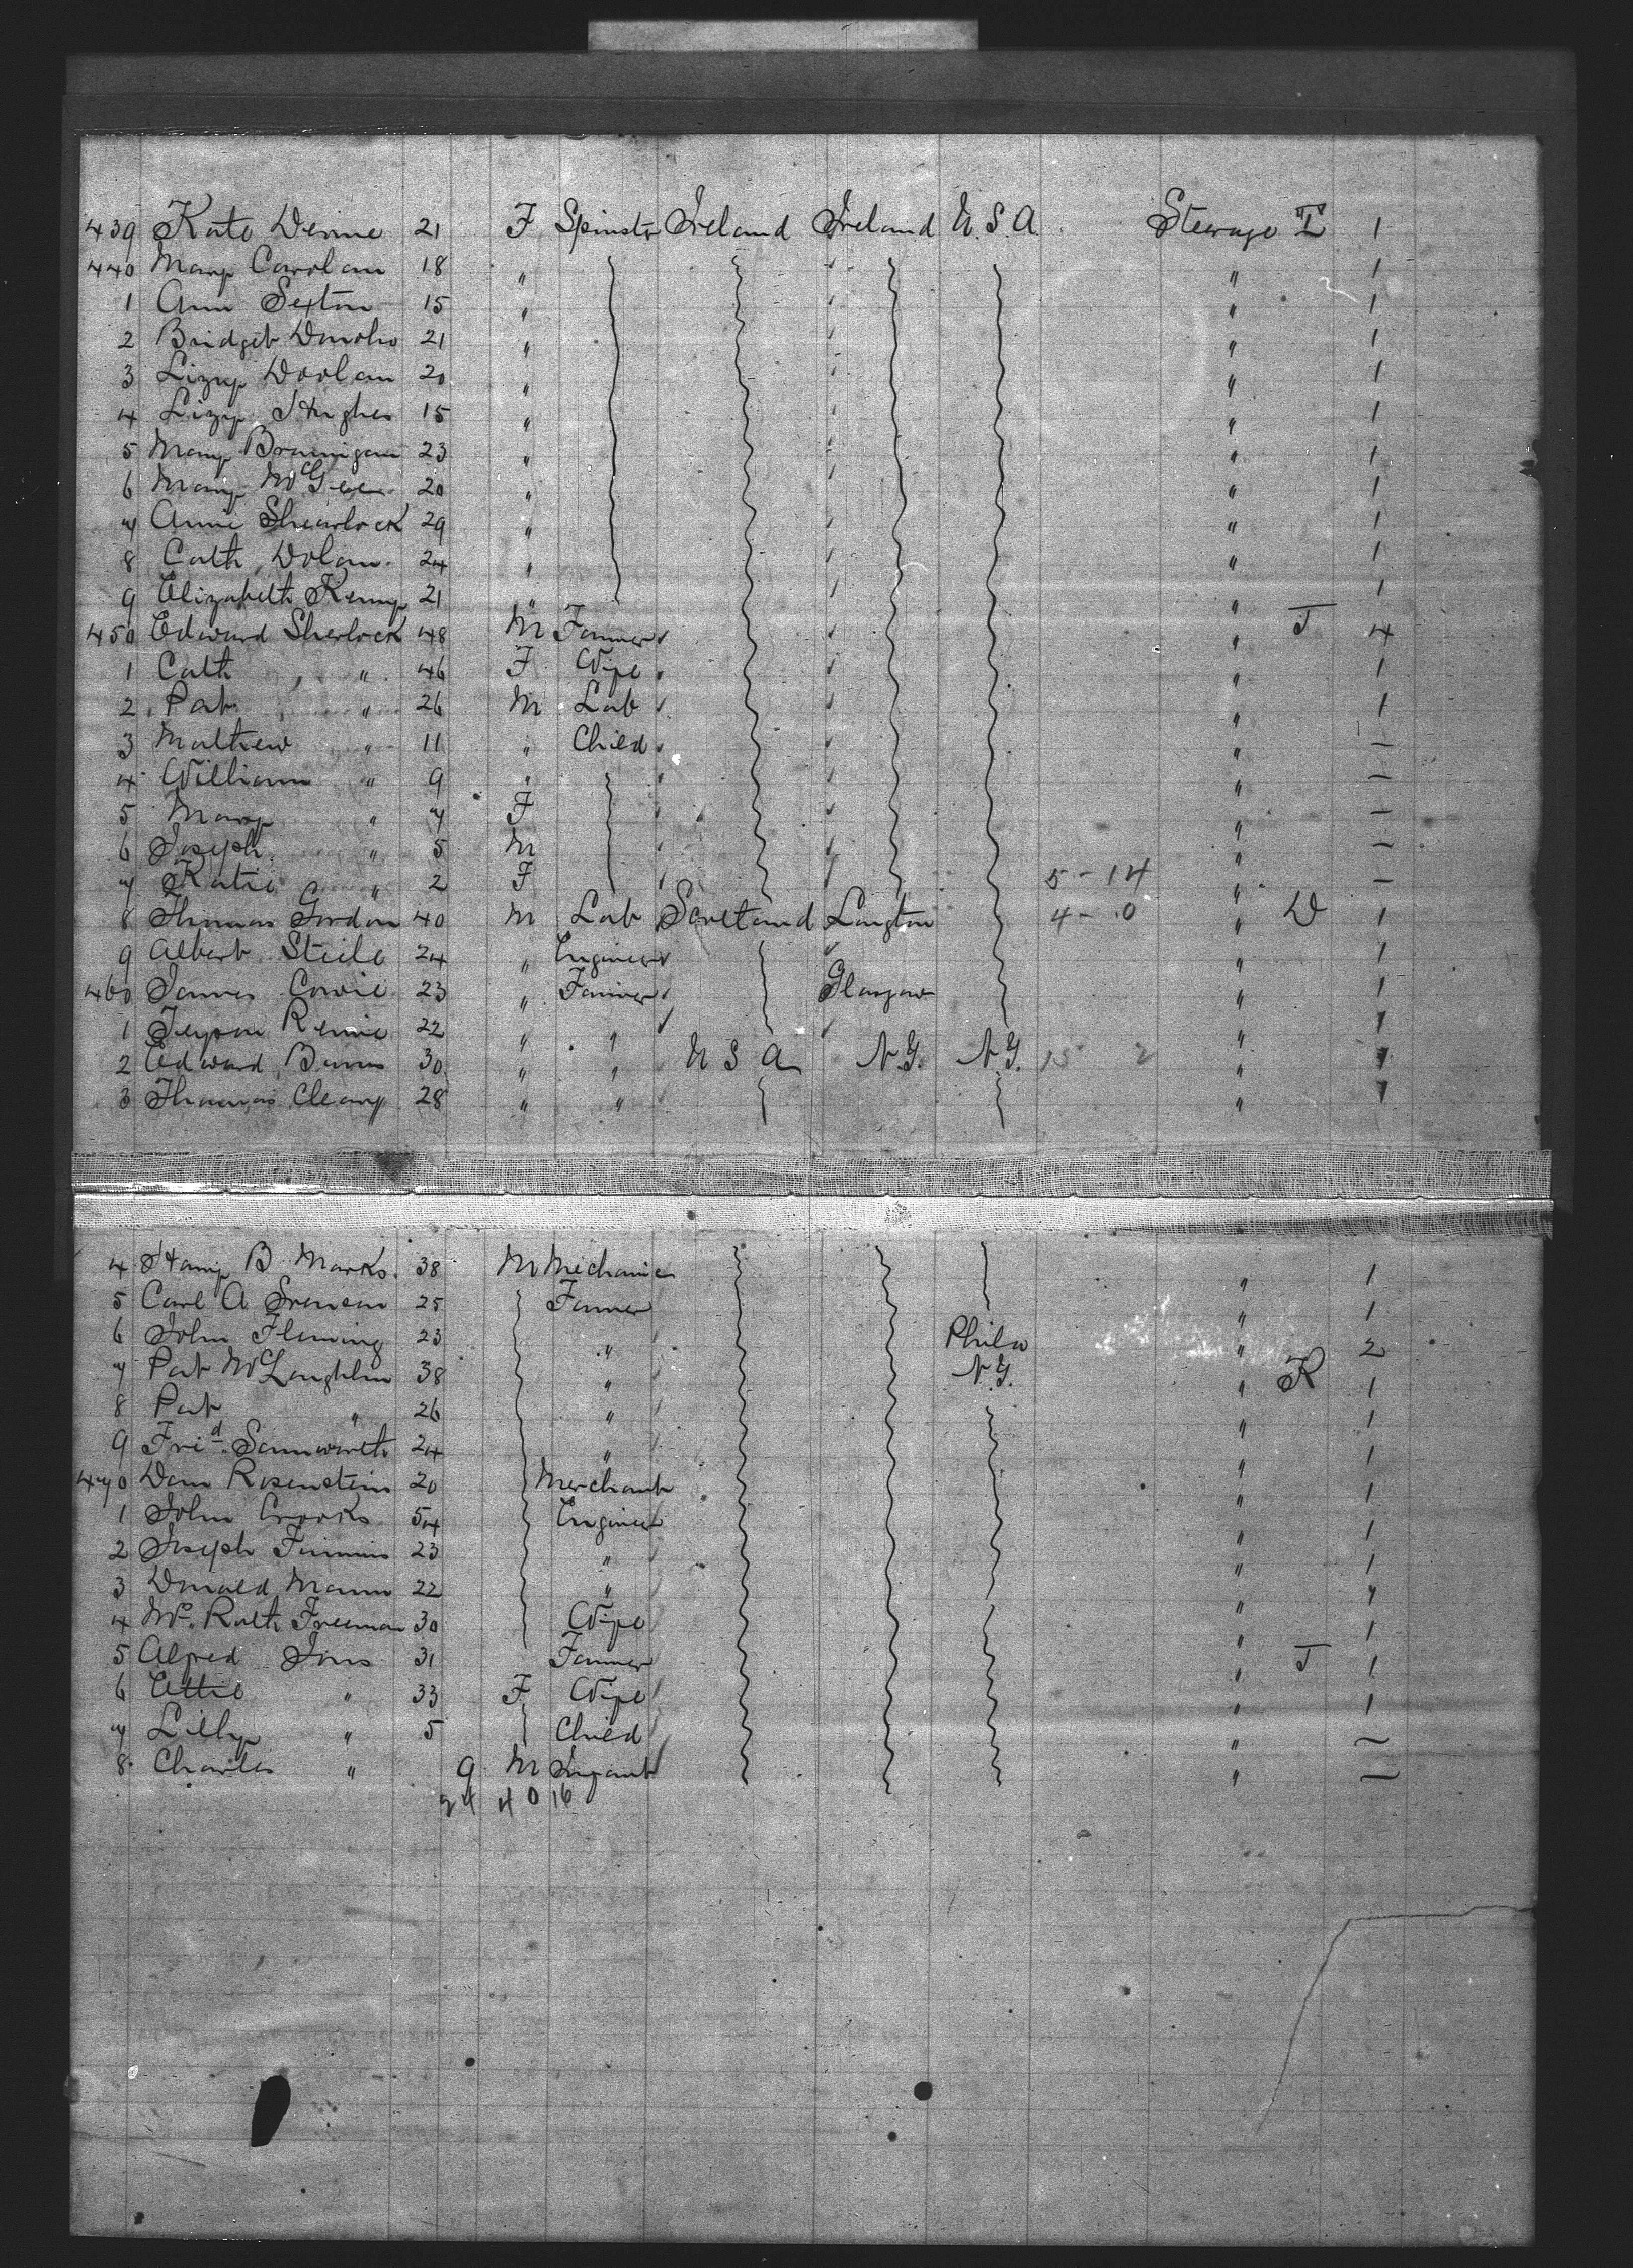 439 Kate Devine 21 F Spinster Ireland Ireland U.S.A. Steerage E 1
440 Mary Carolan 18 " " 1
1 Ann Sexton 15 " " 1
2 Bridget Donoho 21 " " 1
3 Lizzy Doolan 20 " " 1
4 Lizzy Hughes 15 " " 1
5 Mary Brannigan 23 " " 1
6 Mary McGee 20 " " 1
7 Annie Shearlock 29 " " 1
8 Cath Dolan 24 " " 1
9 Elizabeth Kemp 21 " " 1
450 Edward Sherlock 48 M Farmer " J 4
1 Cath " 46 F Wife " 1
2 Pat " 26 M Lab " 1
3 Mathew " 11 " Child " —
4 William " 9 " " —
5 Mary " 7 F " —
6 Joseph " 5 M " —
7 Katie " 2 F 5 - 14 " —
8 Thomas Gordon 40 M Lab Scotland Langton 4 - 0 " D 1
9 Albert Steile 24 " Engineer " 1
460 James Cowie 23 " Farmer Glasgow " 1
1 Rennie 22 " " " 1
2 Edward Burns 30 " " U S A N.Y. N.Y. 15 2 " 1
3 Thomas Cleary 28 " " " 1
4 B Marks 38 M Mechanic " 1
5 Carl A 25 Farmer " 1
6 John Fleming 23 " Phila " 2
7 Pat McLaughlin 38 " N.Y. " R 1
8 Pat " 26 " " 1
9 Fried Samwarth 24 " " 1
470 Dan Rosenstein 20 Merchant " 1
1 John Crooks 54 Engineer " 1
2 Joseph Timmins 23 " " 1
3 Donald Mann 22 " " 1
4 Mrs Kath Freeman 30 Wife " 1
5 Alfred Jons 31 Farmer " J 1
6 Ettie " 33 F Wife " 1
7 Lilly " 5 Child " —
8 Charles " 9 M Infant " —
24 40 16